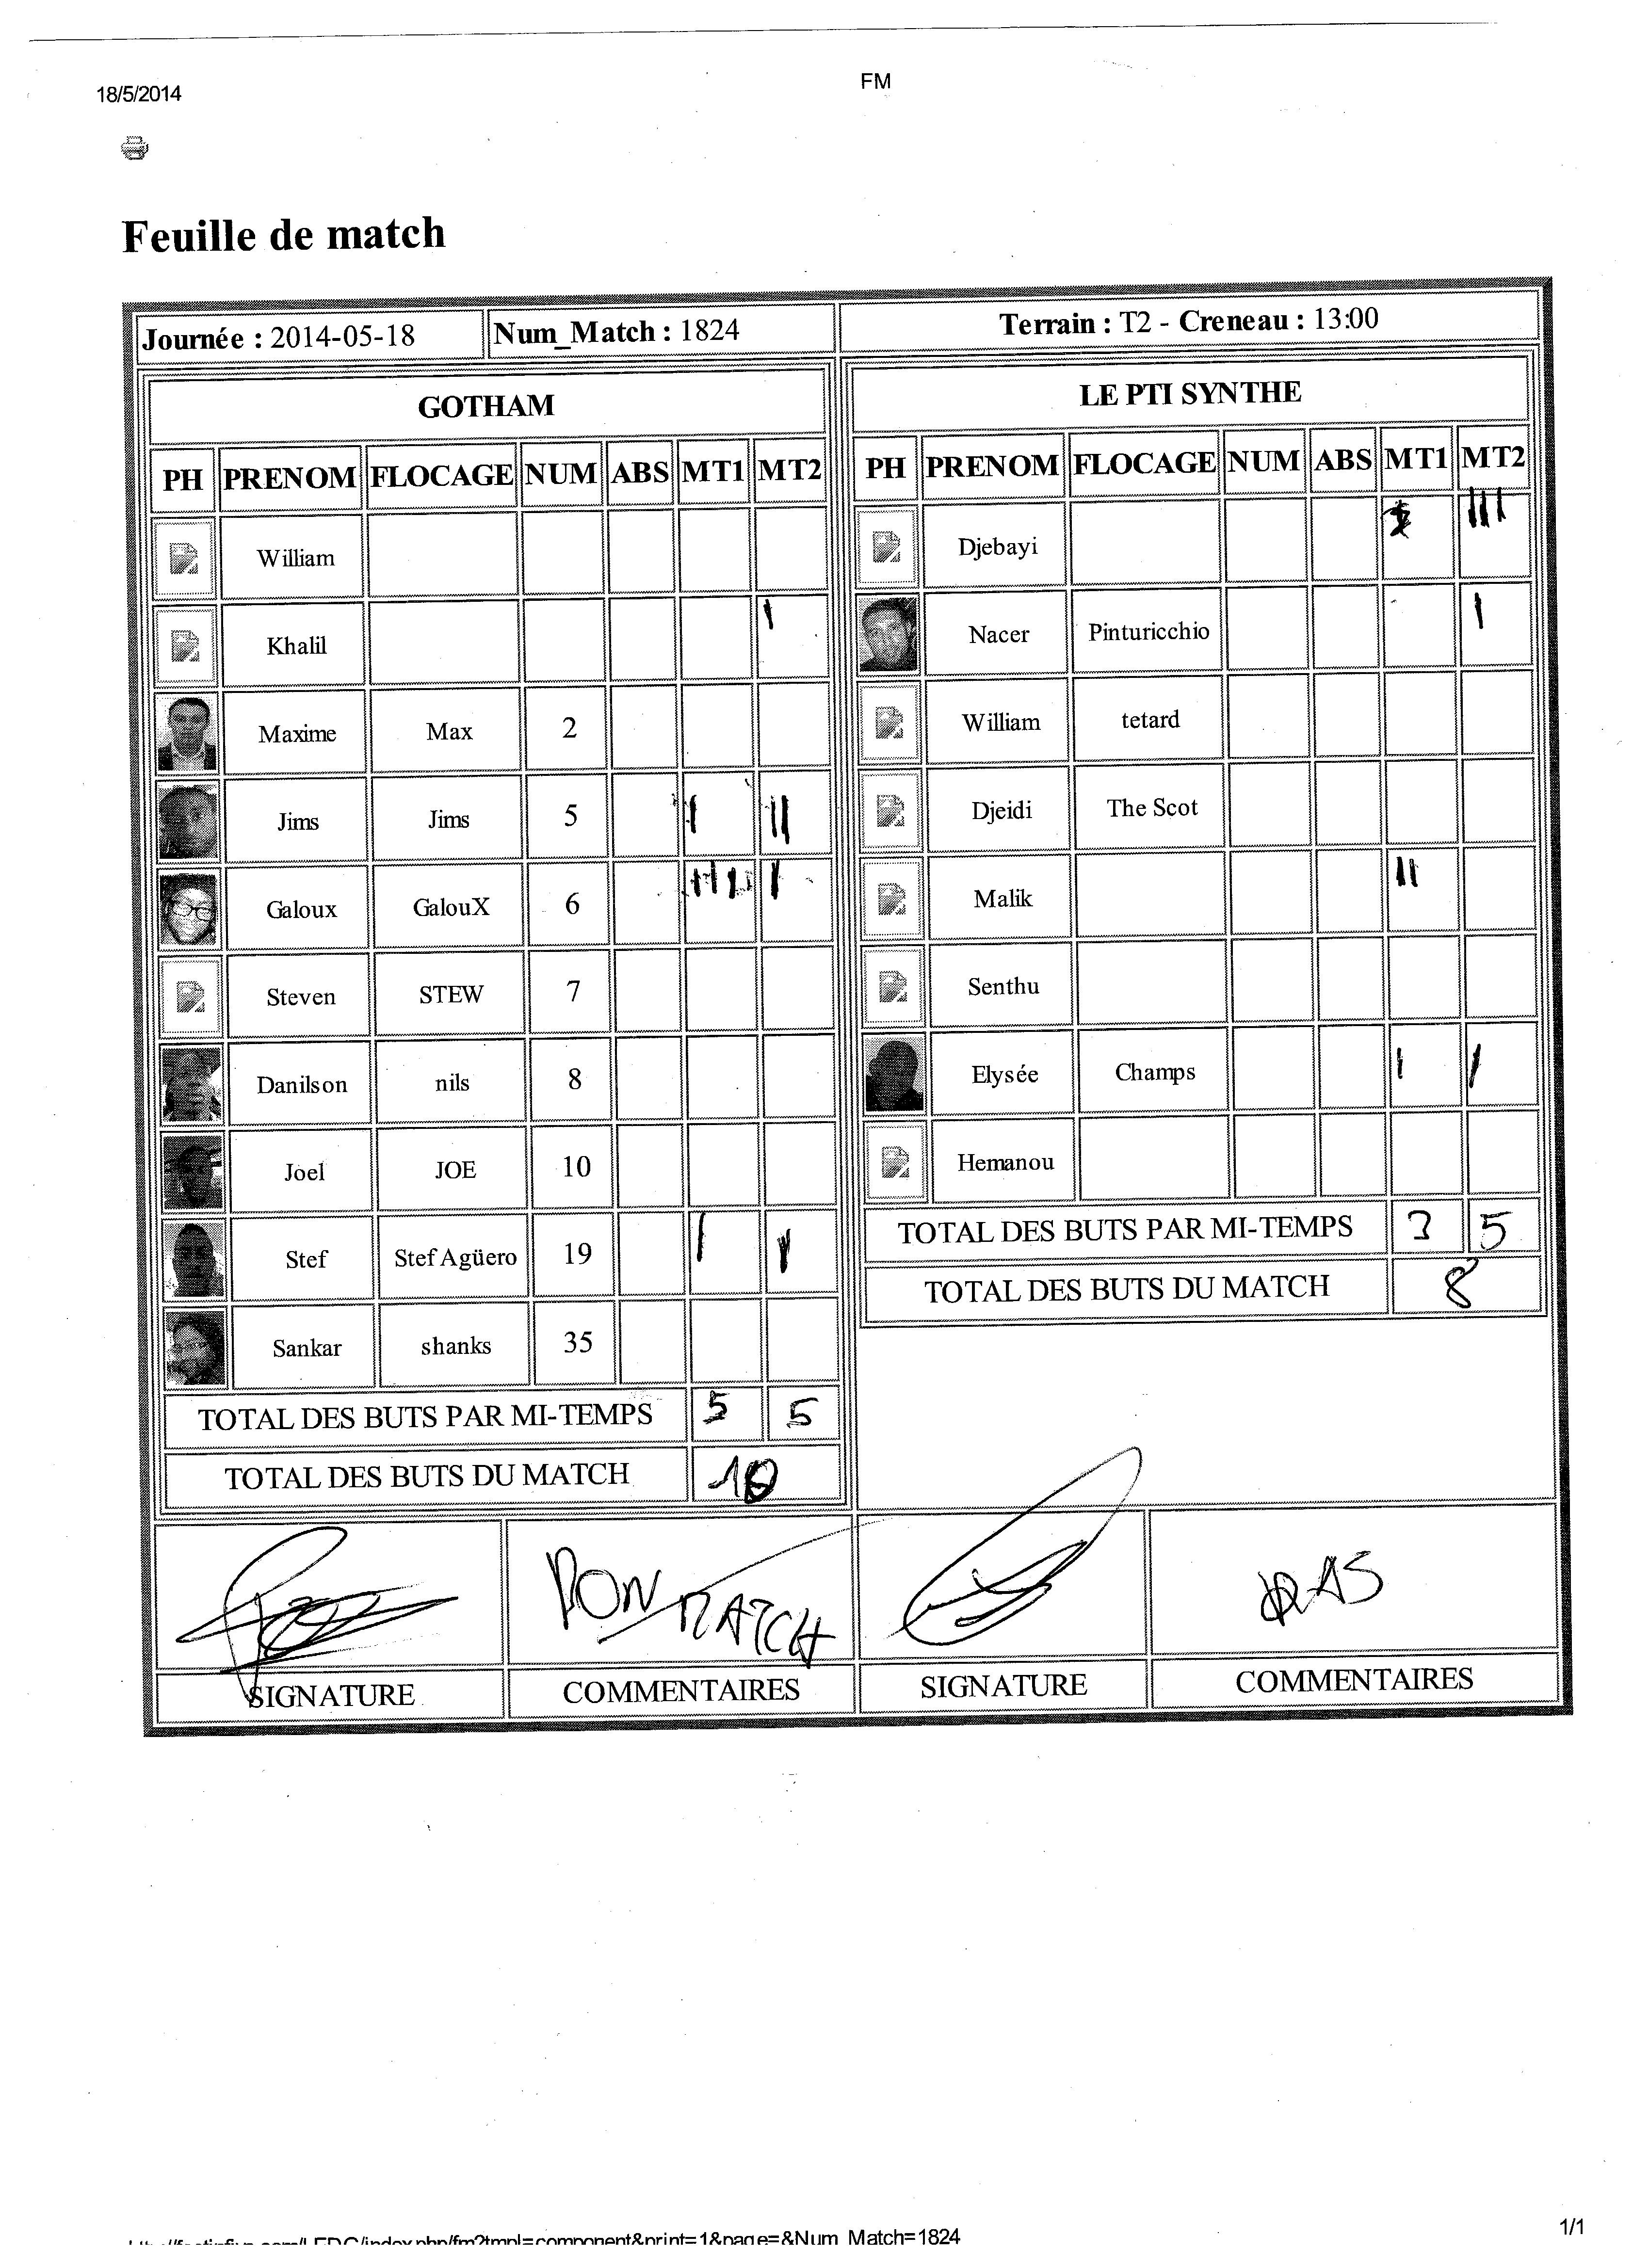 18/5/2014
FM
Feuille de match
Journée : 2014-05-18 Num_Match : 1824 Terrain : T2 - Creneau : 13:00
GOTHAM
PH PRENOM FLOCAGE NUM ABS MT1 MT2
William
Khalil I
Maxime Max 2
Jims Jims 5 I II
Galoux GalouX 6 I
Steven STEW 7
Danilson nils 8
Joel JOE 10
Stef Stef Agüero 19 I I
Sankar shanks 35
TOTAL DES BUTS PAR MI-TEMPS 5 5
TOTAL DES BUTS DU MATCH 10
LE PTI SYNTHE
PH PRENOM FLOCAGE NUM ABS MT1 MT2
Djebayi III
Nacer Pinturicchio I
William tetard
Djeidi The Scot
Malik II
Senthu
Elysée Champs I I
Hemanou
TOTAL DES BUTS PAR MI-TEMPS 3 5
TOTAL DES BUTS DU MATCH 8
BON
MATCH
RAS
SIGNATURE COMMENTAIRES SIGNATURE COMMENTAIRES
1/1